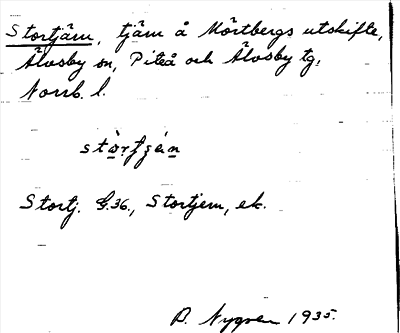 Stortjärn, tjärn å Mörtbergs utskifte,
Älvsby sn, Piteå och Älvsby tg,
Norrb. l.
Stortj. G.36., Stortjern, ek.
B. Nygren 1935.